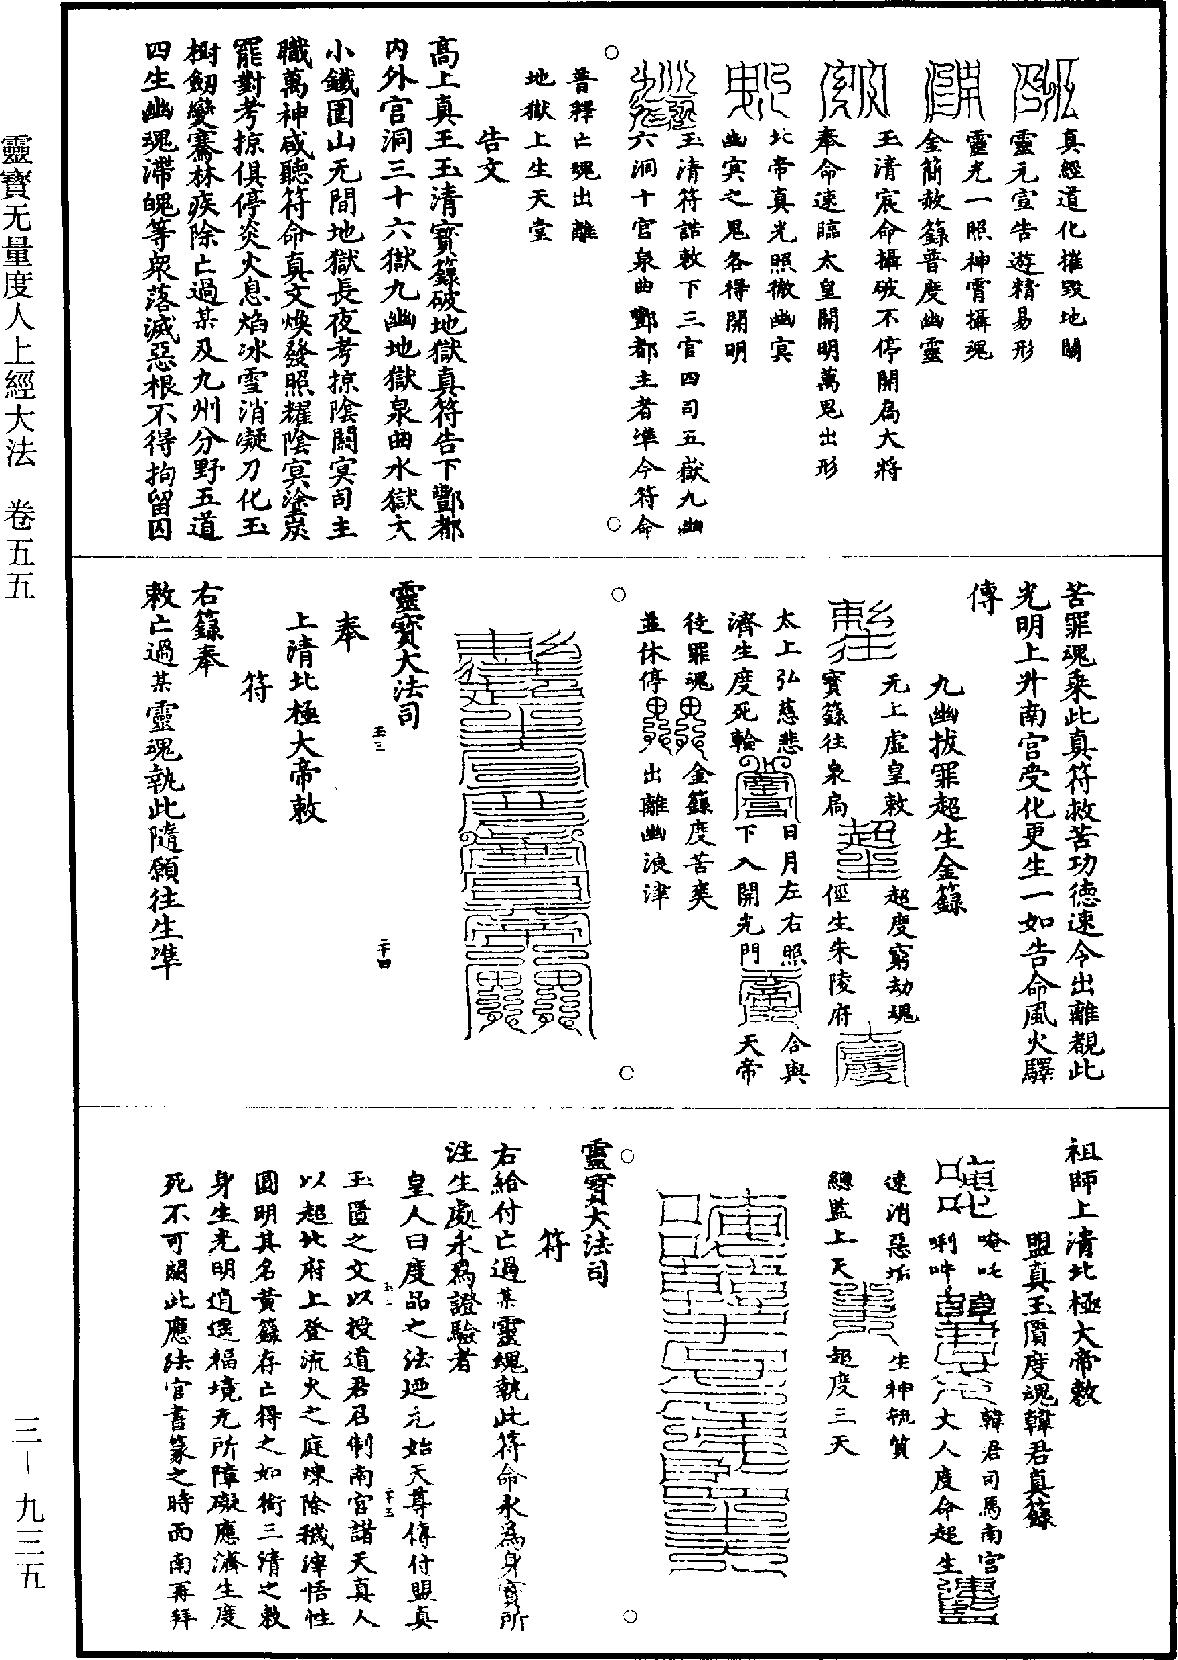 真經道化摧毀地關
靈元宣告遊精易形
靈光一照神霄攝魂
金簡赦籙普度幽靈
玉清宸命攝破不停開扃大將
奉命速臨太皇開明萬鬼出形
北帝真光照徹幽冥
幽冥之鬼各得開明
玉清符誥敕下三官四司五嶽九幽
六洞十官泉曲酆都主者準今符命
普釋亡魂出離
地獄上生天堂
告文
高上真王玉清寶籙破地獄真符告下酆都
內外官洞三十六獄九幽地獄泉曲水獄大
小鐵圍山无間地獄長夜考掠陰關冥司主
職萬神咸聽符命真文煥發照耀陰冥塗炭
罷對考掠俱停炎火息焰冰雪消凝刀化玉
樹劒變騫林疾除亡過某及九州分野五道
四生幽魂滯魄等眾落滅惡根不得拘留囚
苦罪魂乘此真符救苦功德速令出離覩此
光明上升南宮受化更生一如告命風火驛
傳
九幽拔罪超生金籙
无上虛皇敕
寶籙往泉扃
超度窮劫魂
徑生朱陵府
太上弘慈悲
濟生度死輪
日月左右照
下入開光門
合與
天帝
徒罪魂
並休停
金籙度苦爽
出離幽浪津
靈寶大法司
玉三
二十四
奉
上清北極大帝敕
符
右籙奉
敕亡過某靈魂執此隨願往生準
祖師上清北極大帝敕
盟真玉匱度魂韓君真籙
唵吒
唎吽
韓君司馬南宮
大人度命起生
速消惡垢
生神統質
總監上天
超度三天
靈寶大法司
符
右給付亡過某靈魂執此符命永為身寶所
注生處永為證驗者
皇人曰度品之法廼元始天尊傳付盟真
玉匱之文以授道君君制南宮諸天真人
以超北府上登流火之庭煉除穢滓悟性
圓明其名黃籙存亡得之如銜三清之敕
身生光明逍遙福境无所障礙應濟生度
死不可闕此應法官書篆之時面南再拜
靈寶无量度人上經大法　卷五五
三－九三五